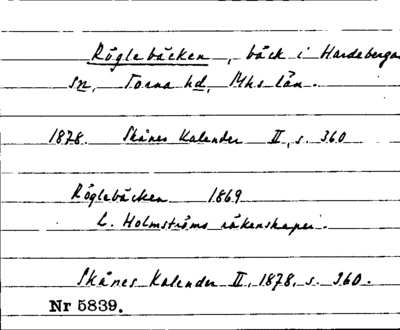 Röglebäcken, bäck i Hardeberga
sn, Torna hd, Mhs län.
1878. Skånes Kalender II, s. 360
Röglebäcken 1869
L. Holmströms räkenskaper.
Skånes Kalender II, 1878, s. 360.
Nr 5839.